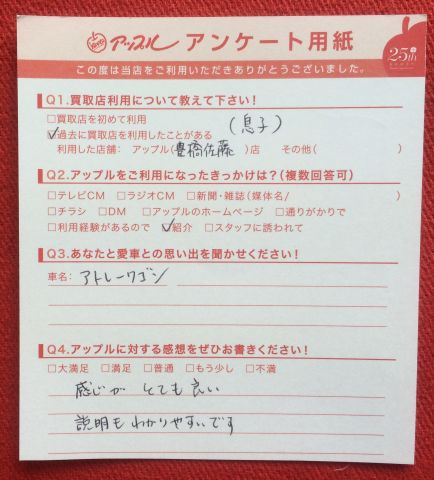 アップル アンケート用紙
25th
この度は当店をご利用いただきありがとうございました。
Q1.買取店利用について教えて下さい！
□買取店を初めて利用
☑過去に買取店を利用したことがある (息子)
利用した店舗： アップル(豊橋佐藤)店 その他( )
Q2.アップルをご利用になったきっかけは？(複数回答可)
□テレビCM □ラジオCM □新聞・雑誌(媒体名/ )
□チラシ □DM □アップルのホームページ □通りがかりで
□利用経験があるので ☑紹介 □スタッフに誘われて
Q3.あなたと愛車との思い出を聞かせください！
車名： アトレーワゴン
Q4.アップルに対する感想をぜひお書きください！
□大満足 □満足 □普通 □もう少し □不満
感じが とても良い
説明も わかりやすいです